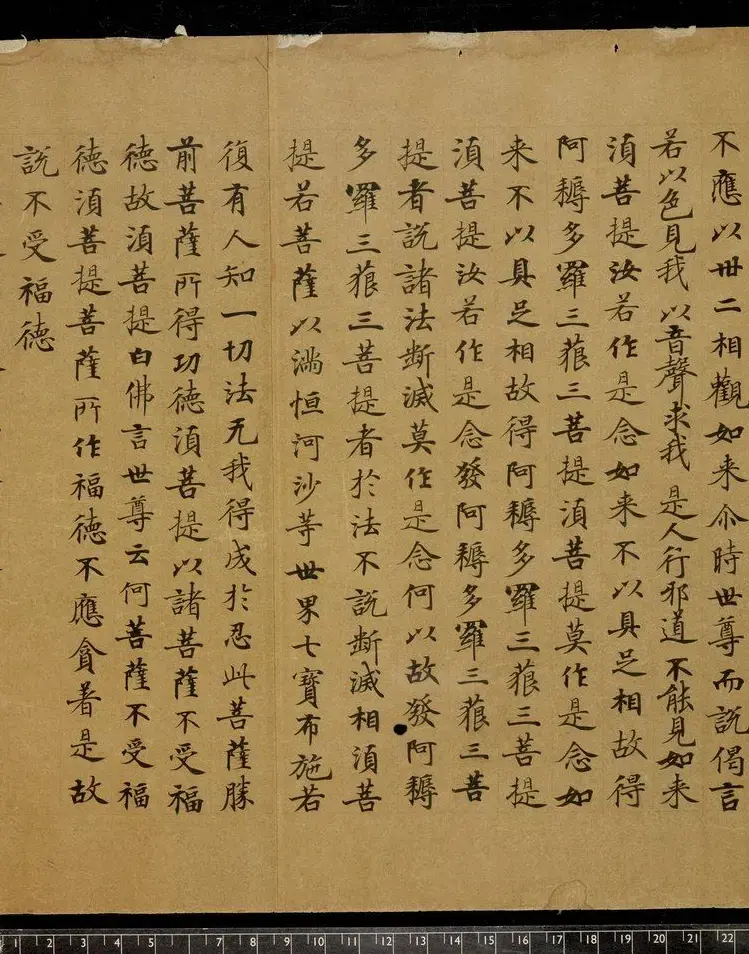 不應以丗二相觀如来尒時世尊而說偈言
若以色見我以音聲求我是人行邪道不能見如来
湏菩提汝若作是念如来不以具足相故得
阿耨多羅三藐三菩提湏菩提莫作是念如
来不以具足相故得阿耨多羅三藐三菩提
湏菩提汝若作是念發阿耨多羅三藐三菩
提者說諸法断滅莫作是念何以故發阿耨
多羅三藐三菩提者於法不說断滅相湏菩
提若菩薩以滿恒河沙等世界七寶布施若
復有人知一切法无我得成於忍此菩薩勝
前菩薩所得功德湏菩提以諸菩薩不受福
德故湏菩提白佛言世尊云何菩薩不受福
德湏菩提菩薩所作福德不應貪著是故
說不受福德
1 2 3 4 5 7 8 9 10 11 12 13 14 15 16 17 18 19 20 21 22